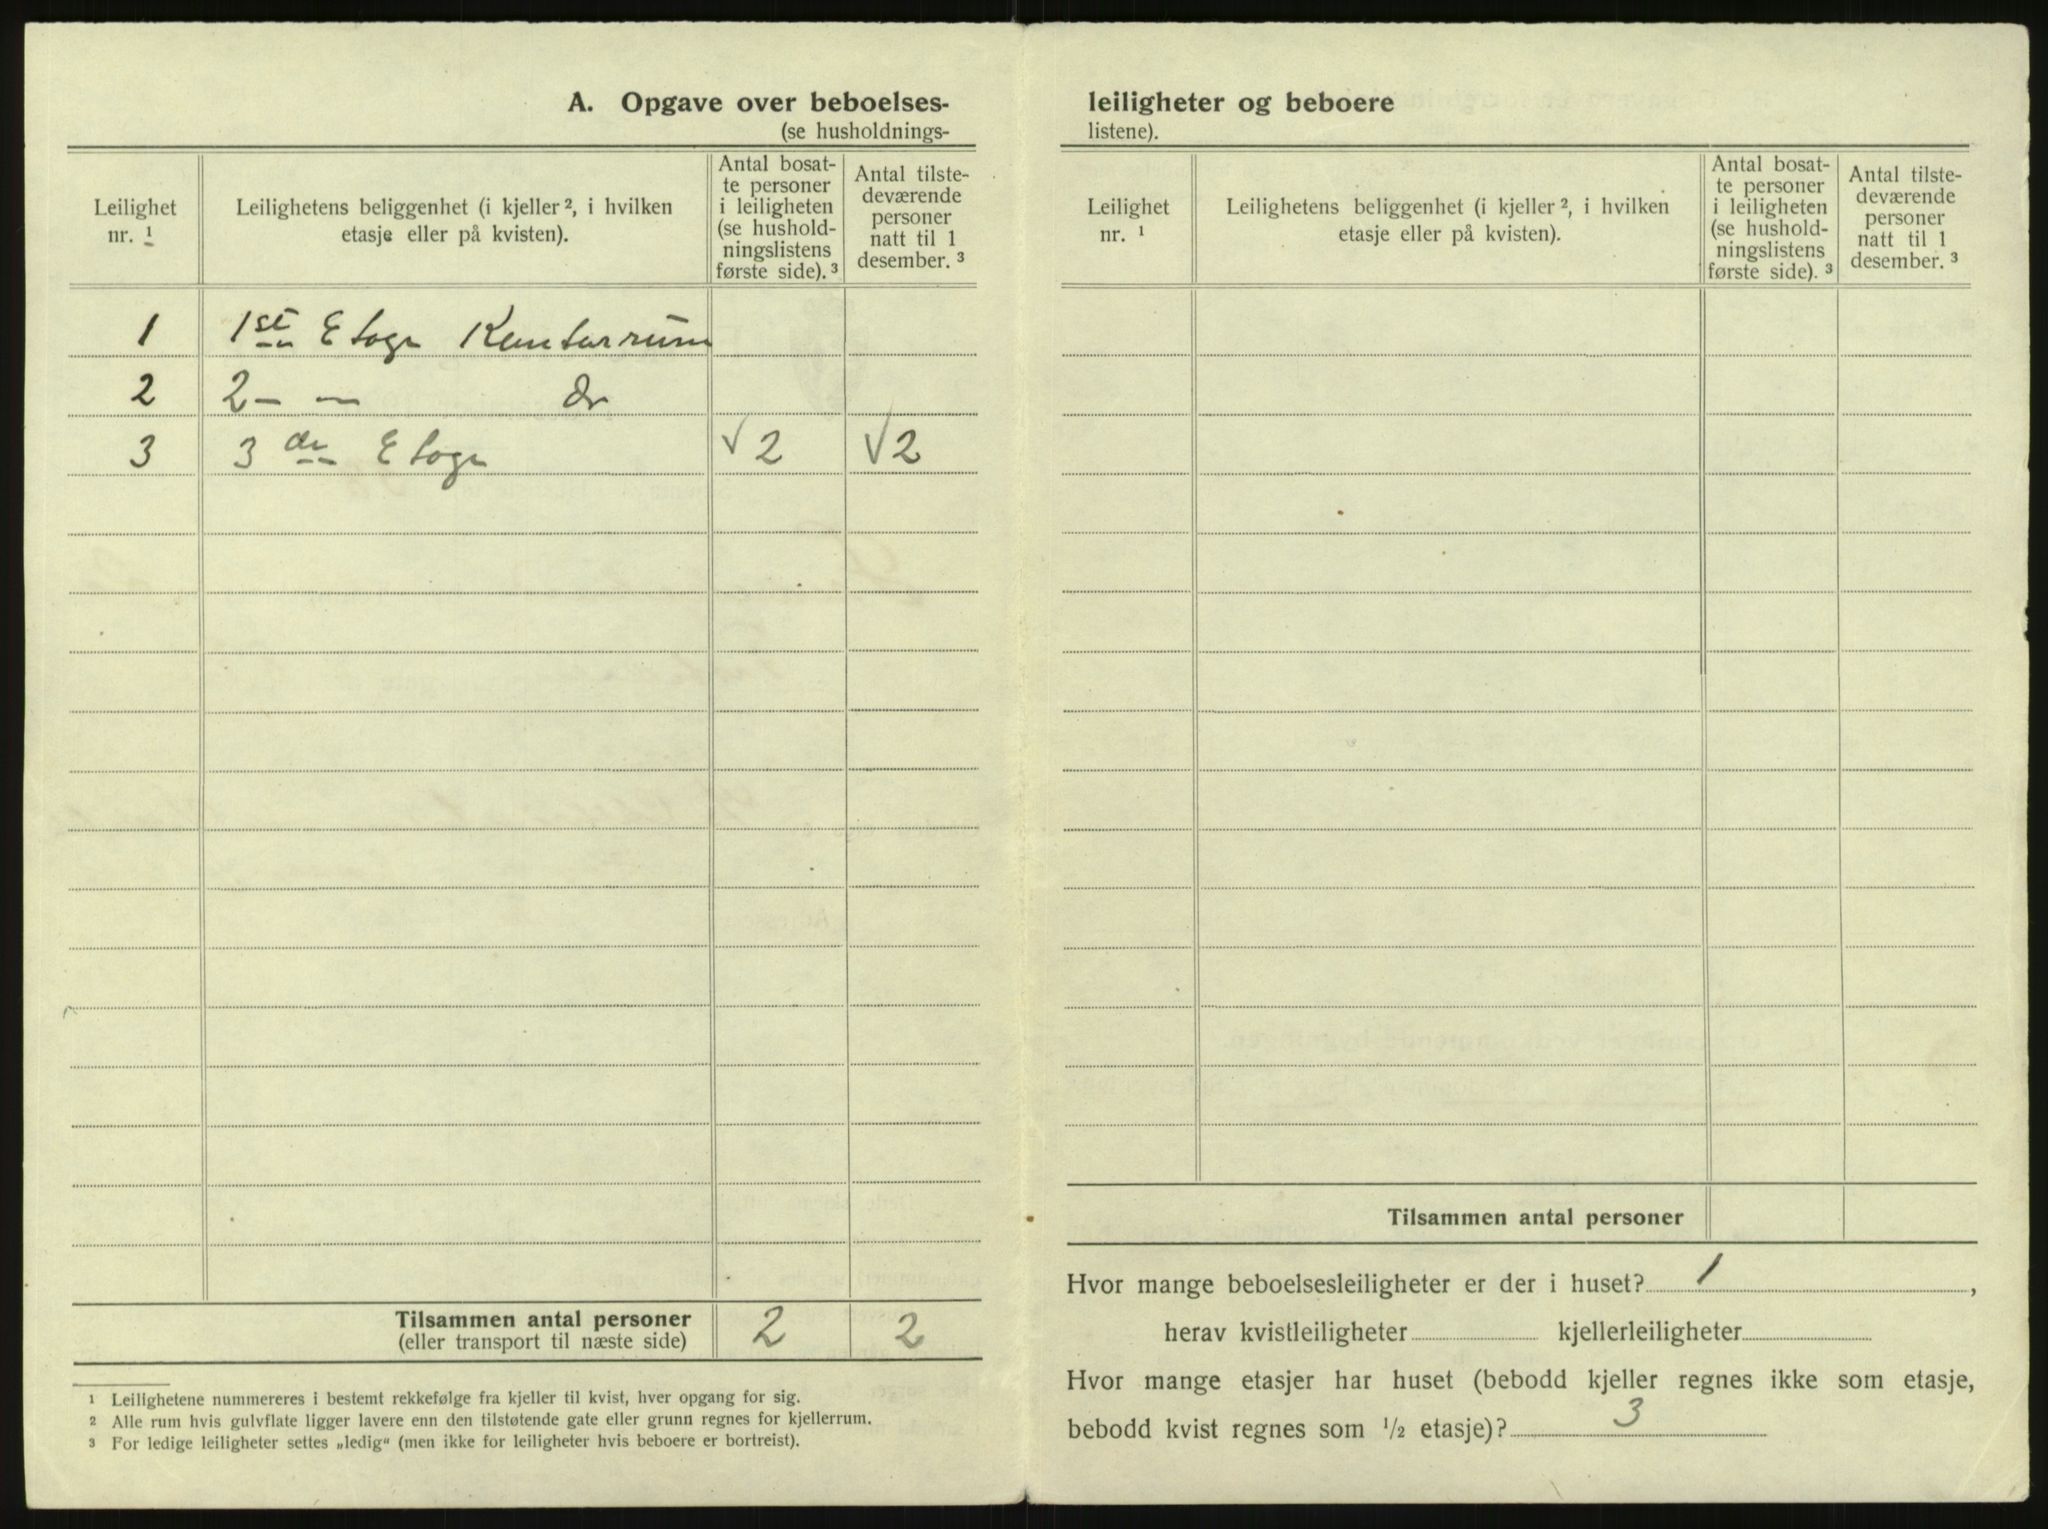 A. Opgave over beboelses-
(se husholdnings-
Leilighet
nr. 1
Leilighetens beliggenhet (i kjeller 2, i hvilken
etasje eller på kvisten).
Antal bosat-
te personer
i leiligheten
(se hushold-
ningslistens
første side). 3
Antal tilste-
deværende
personer
natt til 1
desember. 3
1 1ste Etage Kontorrum
2 2 — — Do
3 3die Etage √2 √2
Tilsammen antal personer 2 2
(eller transport til næste side)
1 Leilighetene nummereres i bestemt rekkefølge fra kjeller til kvist, hver opgang for sig.
2 Alle rum hvis gulvflate ligger lavere enn den tilstøtende gate eller grunn regnes for kjellerrum.
3 For ledige leiligheter settes „ledig“ (men ikke for leiligheter hvis beboere er bortreist).
leiligheter og beboere
listene).
Leilighet
nr. 1
Leilighetens beliggenhet (i kjeller 2, i hvilken
etasje eller på kvisten).
Antal bosat-
te personer
i leiligheten
(se hushold-
ningslistens
første side). 3
Antal tilste-
deværende
personer
natt til 1
desember. 3
Tilsammen antal personer
Hvor mange beboelsesleiligheter er der i huset? 1,
herav kvistleiligheter kjellerleiligheter
Hvor mange etasjer har huset (bebodd kjeller regnes ikke som etasje,
bebodd kvist regnes som 1/2 etasje)? 3